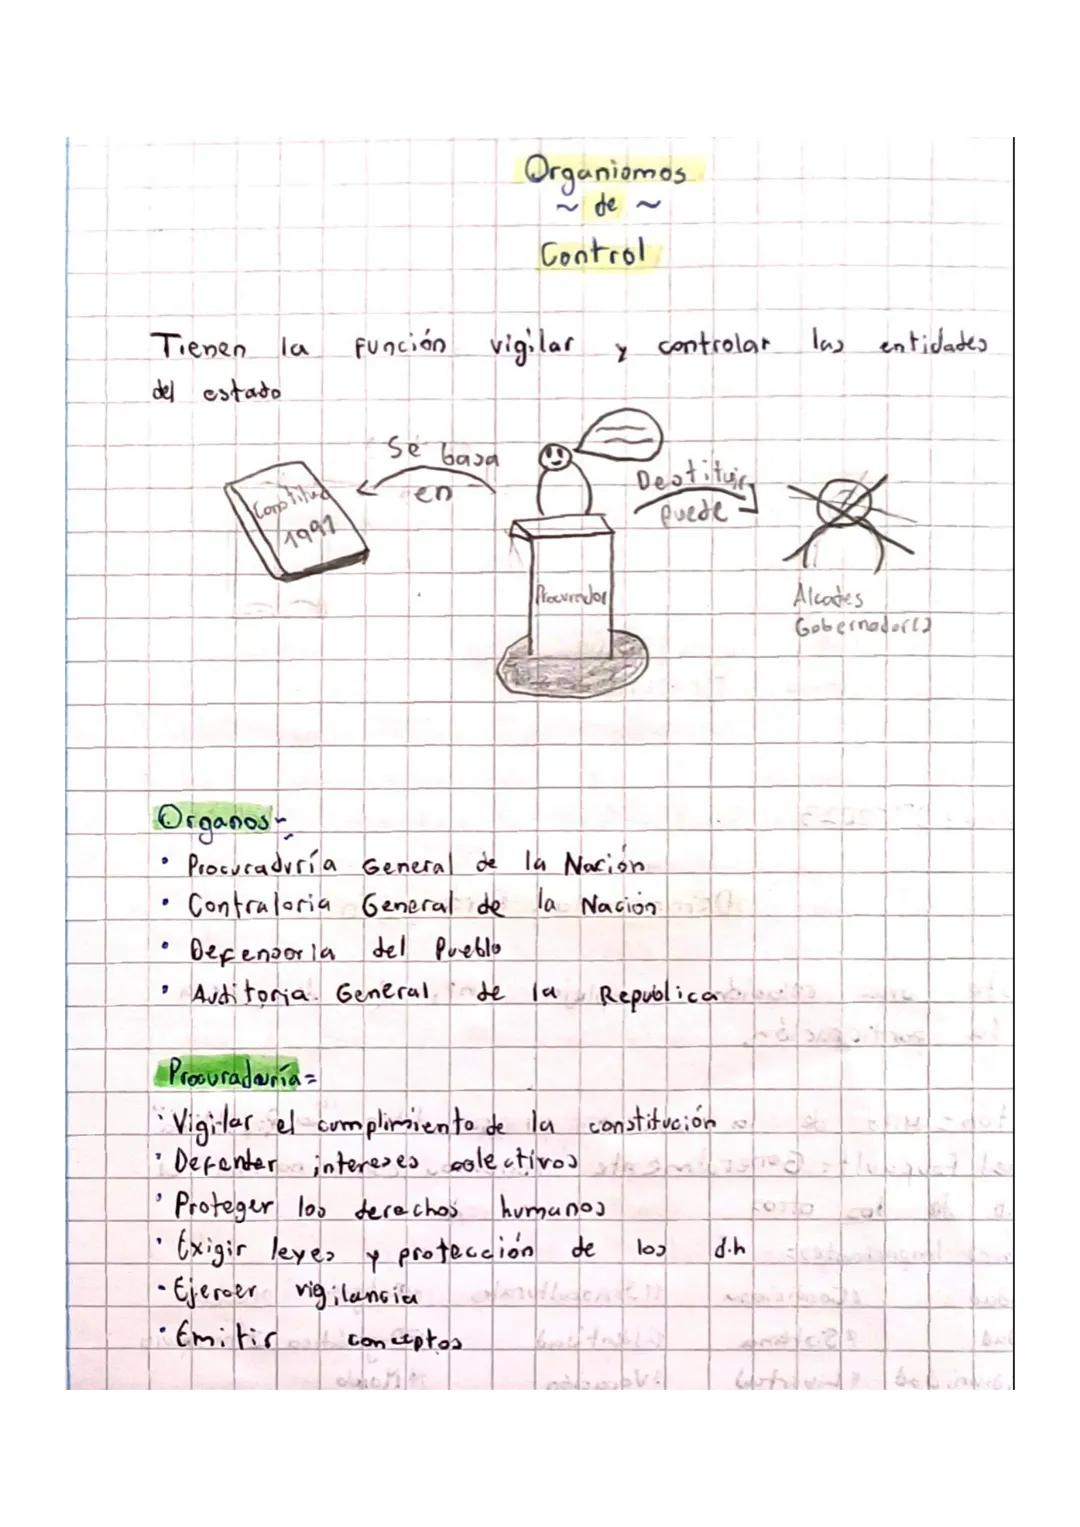 Organismos
~ de ~
Control
Tienen la función vigilar y controlar las entidades
del estado
Se basa
en
Constituc
1991
Procurador
Destituir
puede
Alcades
Gobernador(
Organos
• Procuraduría General de la Nación
• Contraloria General de la Nación
• Defensoria del Pueblo
• Auditoria General de la Republica
Procuraduría=
• Vigilar el cumplimiento de la constitución
• Defender intereses colectivos
• Proteger los derechos humanos
• Exigir leyes y protección de los d.h
• Ejercer vigilancia
• Emitir conceptos